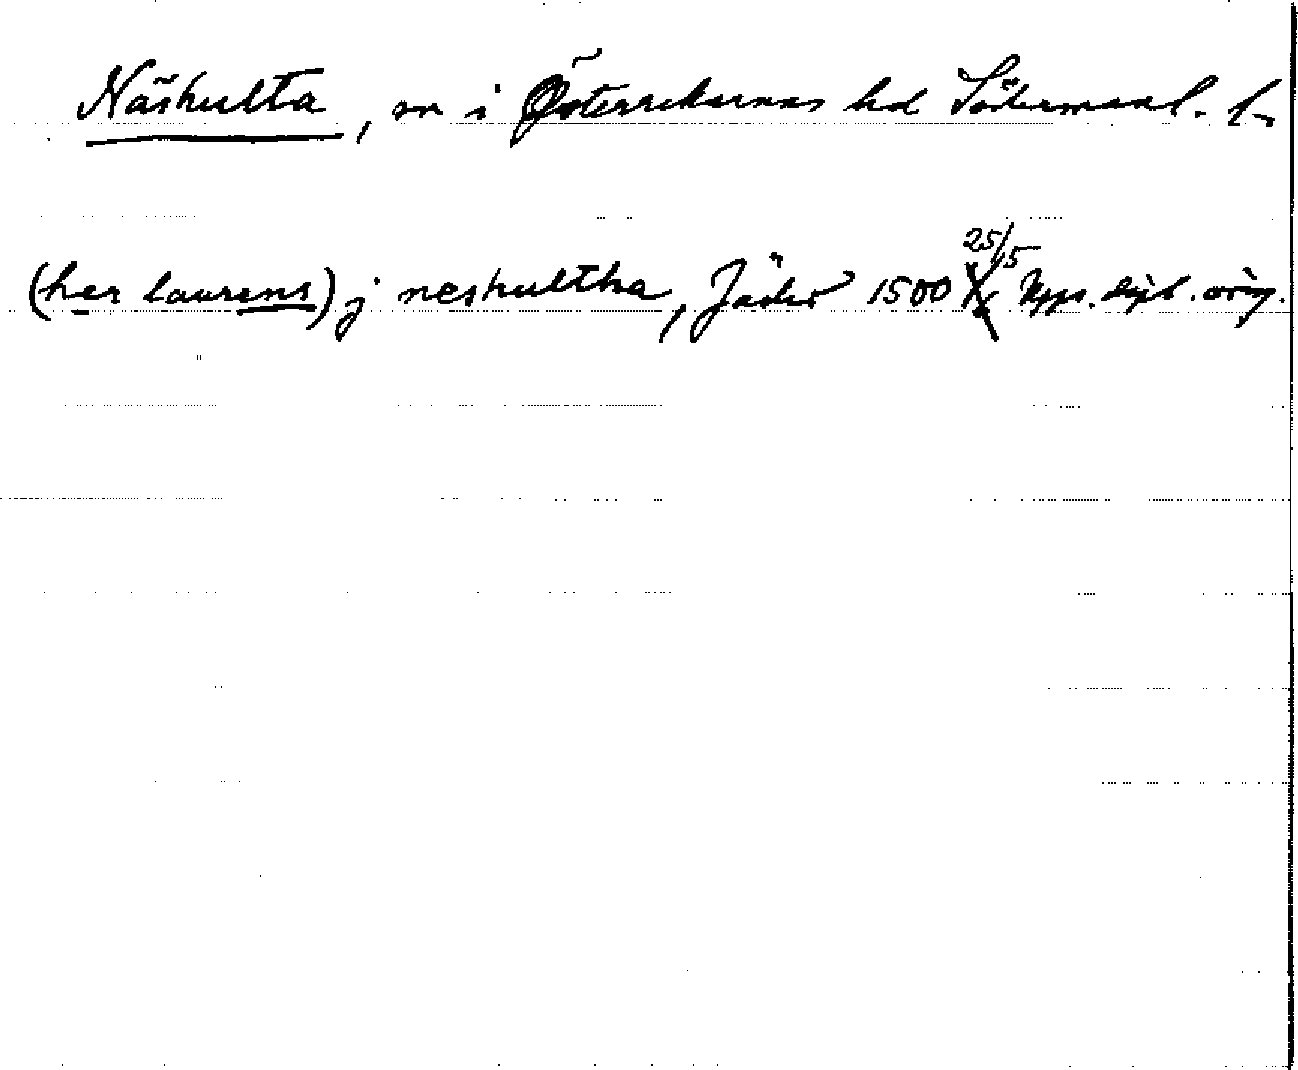 Näshulta, sn i Österrekarnes hd Södermanl. l.
(her laurens) j neshultha, Jäder 1500 25/5 Upps. dipl. orig.